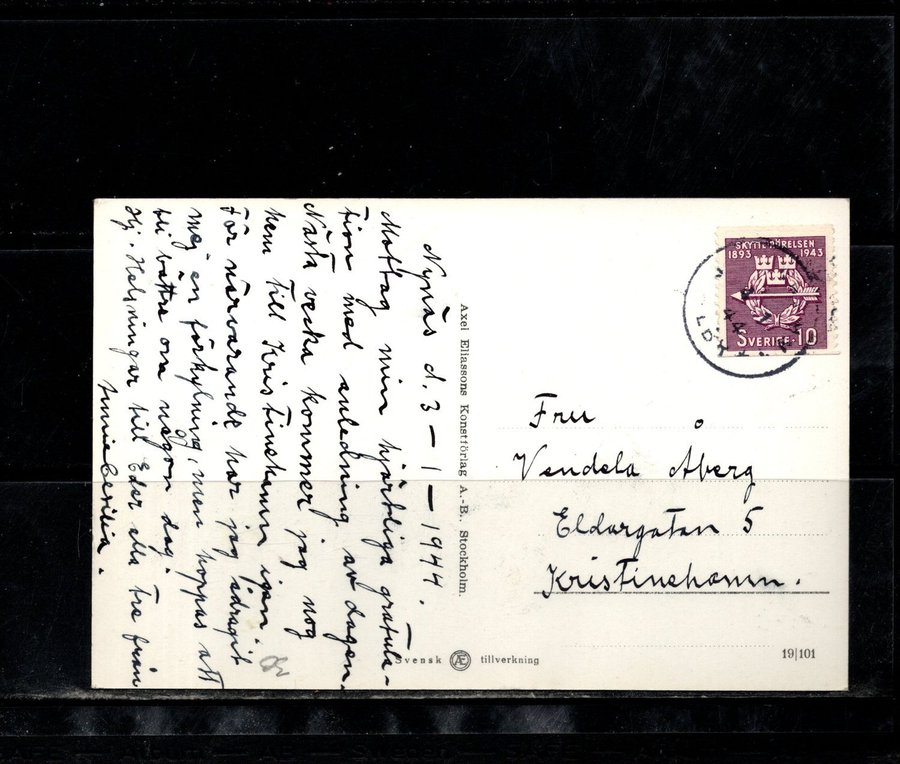 Nynäs d. 3 – 1 – 1944.
Mottag min hjärtliga gratula-
tion med anledning av dagen.
Nästa vecka kommer jag nog
hem till Kristinehamn igen.
För närvarande har jag ådragit
mej en förkylning, men hoppas att
bli bättre om någon dag.
Hj. Helsningar till Eder alla tre från
Axel Eliassons Konstförlag A.-B., Stockholm.
SKYTTERÖRELSEN
1893 1943
SVERIGE 10
44
Fru
Vendela Åberg
Eldargatan 5
Kristinehamn.
Svensk Æ tillverkning
19|101